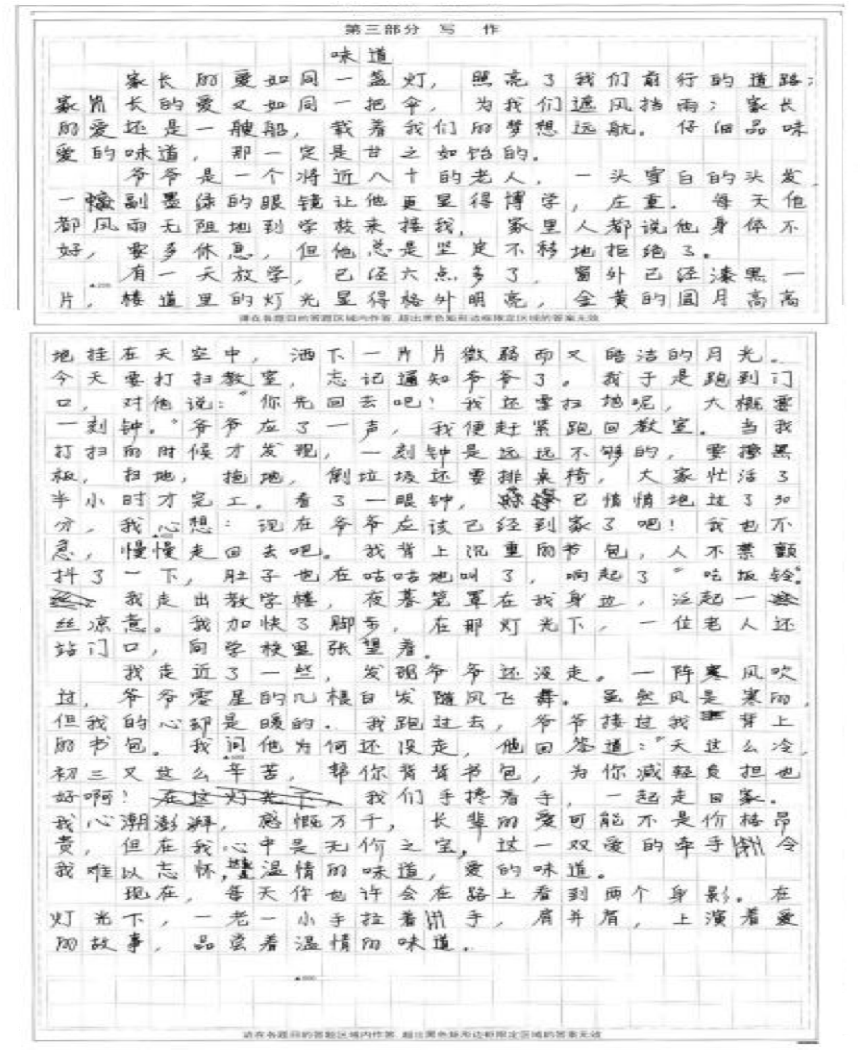 第三部分 写 作
味道
家长的爱如同一盏灯，照亮了我们前行的道路；
家长的爱又如同一把伞，为我们遮风挡雨；家长
的爱还是一艘船，载着我们的梦想远航。仔细品味
爱的味道，那一定是甘之如饴的。
爷爷是一个将近八十的老人，一头雪白的头发，
一副墨绿的眼镜让他更显得博学，庄重。每天他
都风雨无阻地到学校来接我，家里人都说他身体不
好，要多休息，但他总是坚定不移地拒绝了。
有一天放学，已经六点多了，窗外已经漆黑一
片，楼道里的灯光显得格外明亮，金黄的圆月高高
请在各题目的答题区域内作答，超出黑色矩形边框限定区域的答案无效
地挂在天空中，洒下一片片微弱而又皓洁的月光。
今天要打扫教室，忘记通知爷爷了。我于是跑到门
口，对他说：“你先回去吧！我还要扫地呢，大概要
一刻钟。”爷爷应了一声，我便赶紧跑回教室。当我
打扫的时候才发现，一刻钟是远远不够的，要擦黑
板，扫地，拖地，倒垃圾还要排桌椅，大家忙活了
半小时才完工。看了一眼钟，已悄悄地过了30
分，我心想：现在爷爷应该已经到家了吧！我也不
急，慢慢走回去吧。我背上沉重的书包，人不禁颤
抖了一下，肚子也在咕咕地叫了，响起了“吃饭铃”。
我走出教学楼，夜幕笼罩在我身边，泛起一
丝凉意。我加快了脚步，在那灯光下，一位老人还
站门口，向学校里张望着。
我走近了一些，发现爷爷还没走。一阵寒风吹
过，爷爷零星的几根白发随风飞舞。虽然风是寒的，
但我的心却是暖的。我跑过去，爷爷接过我背上
的书包。我问他为何还没走，他回答道：“天这么冷，
初三又这么辛苦，帮你背背书包，为你减轻负担也
好啊！在这灯光下，我们手搀着手，一起走回家。
我心潮澎湃，感慨万千，长辈的爱可能不是价格昂
贵，但在我心中是无价之宝，这一双爱的牵手令
我难以忘怀，温情的味道，爱的味道。
现在，每天你也许会在路上看到两个身影。在
灯光下，一老一小手拉着手，肩并肩，上演着爱
的故事，品尝着温情的味道。
请在各题目的答题区域内作答，超出黑色矩形边框限定区域的答案无效